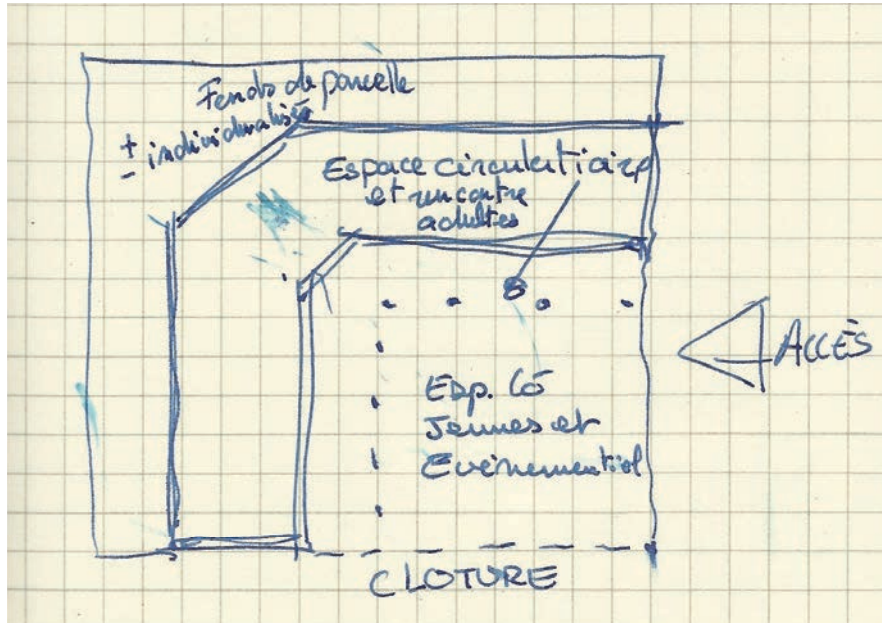 Fonds de parcelle
± individualisés
Espace circulatiaire
et rencontre
adultes
ACCÈS
Esp. Co
Jeunes et
Evénementiel
CLOTURE